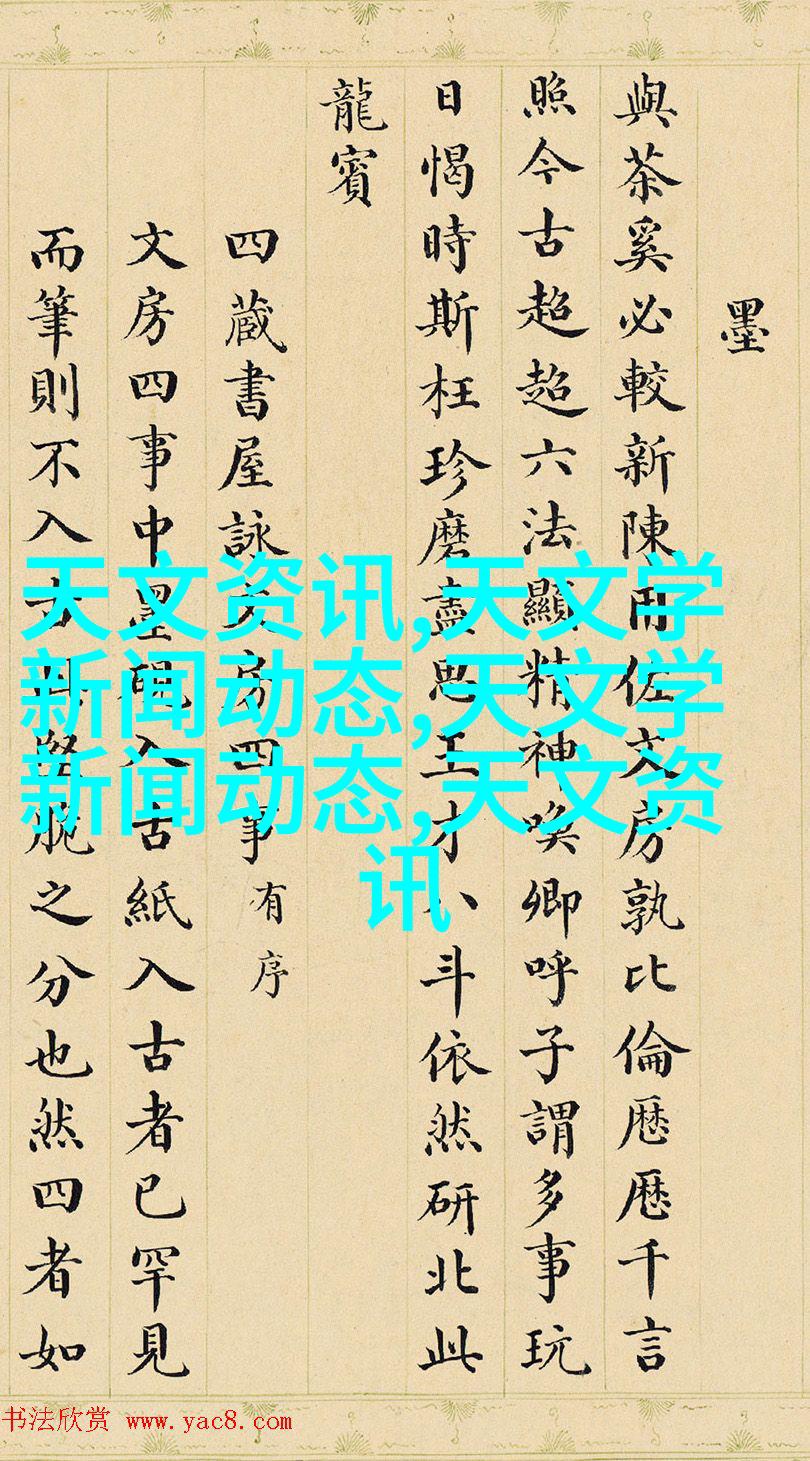 墨
與茶奚必較新陳用佐文房孰比倫歷歷千言
照今古超超六法顯精神喚卿呼子謂多事玩
日愒時斯枉珍磨盡思王才八斗依然研北此
龍賓
四蔵書屋詠文房四事有序
文房四事中墨硯入古紙入古者已罕見
而筆則不入古之分也然四者如
天文资讯,天文学
新闻动态,天文学
新闻动态,天文资
讯
书法欣赏 www.yac8.com